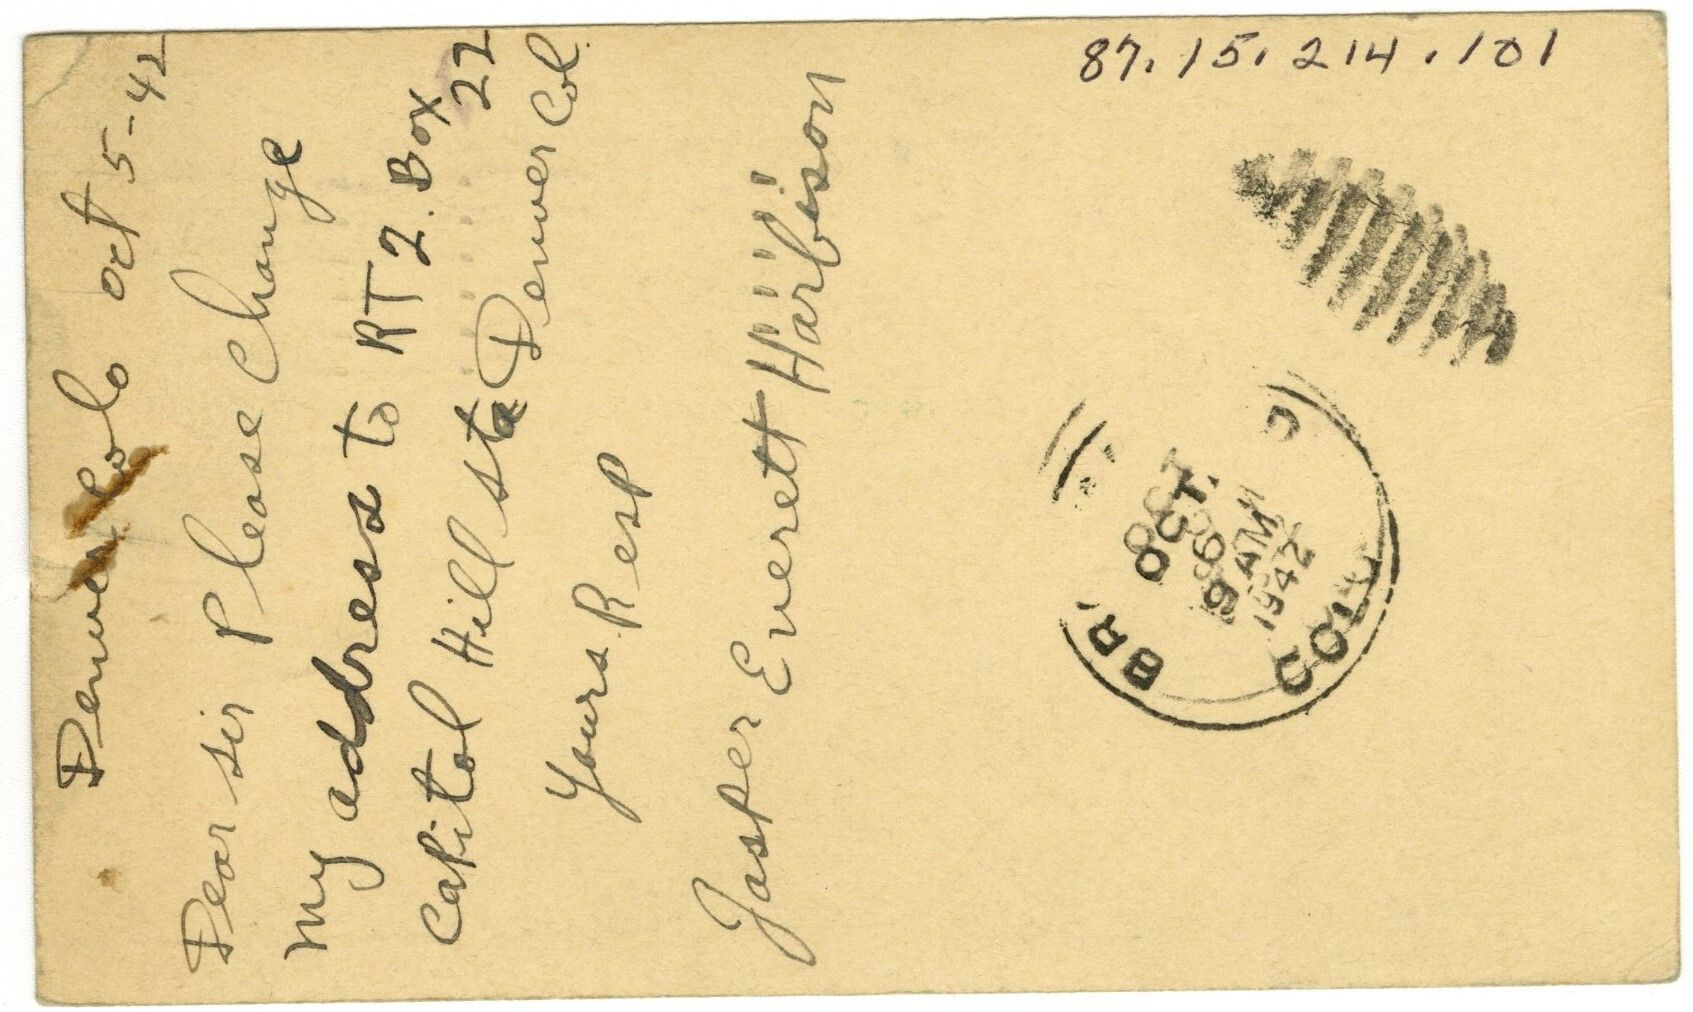 87.15.214.101
Denver Colo Oct 5-42
Dear sir Please Change
My address to RT 2. Box 22
Capitol Hill sta Denver Col.
Yours Resp
Jasper Everett Harbison
OCT. 6
9 AM
1942
COLO